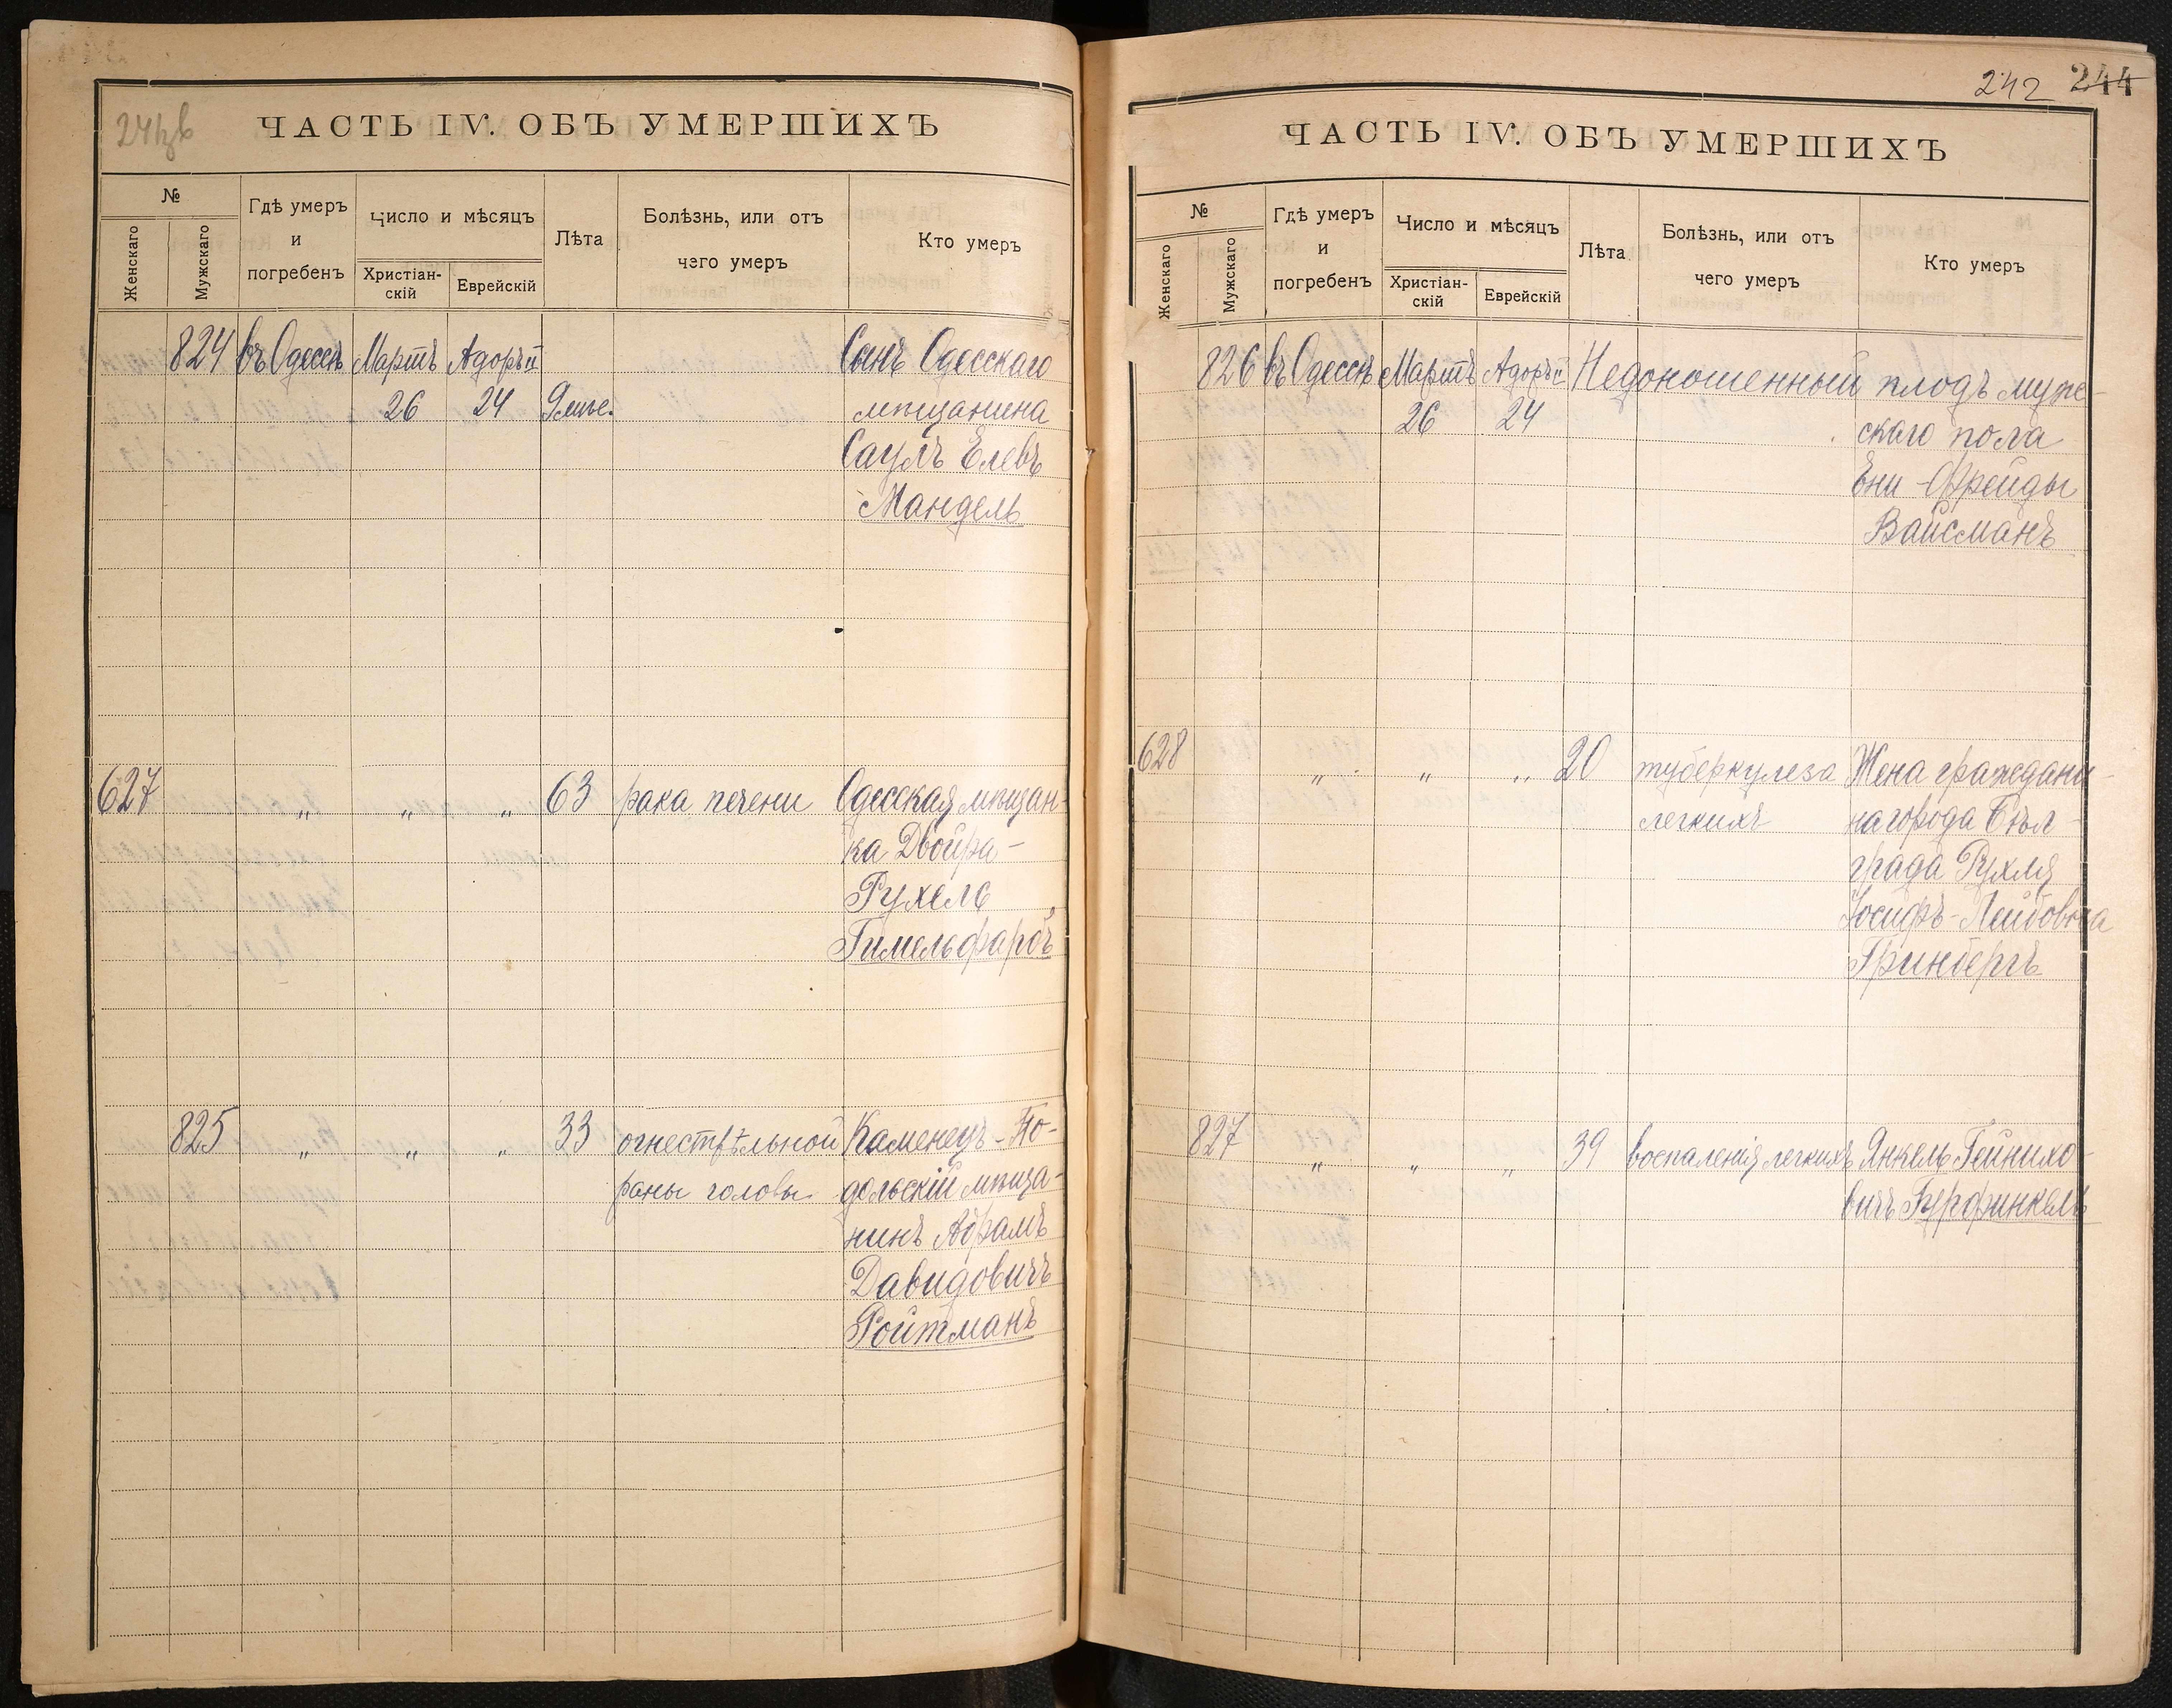 241об
ЧАСТЬ IV. ОБЪ УМЕРШИХЪ
№
Женскаго
Мужскаго
Гдѣ умеръ
и
погребенъ
Число и мѣсяцъ
Христіан-
скій
Еврейскій
Лѣта
Болѣзнь, или отъ
чего умеръ
Кто умеръ
824 въ Одессѣ Мартъ Адоръ II Сынъ Одесскаго
26 24 9 мѣс. мѣщанина
Саулъ Елевъ
Мандель
627 „ „ „ 63 рака печени Одесская мѣщан-
ка Двойра-
Рухель
Гимельфарбъ
825 „ „ „ 33 огнестрѣльной Каменецъ-По-
раны головы дольскій мѣща-
нинъ Абрамъ
Давидовичъ
Ройтманъ
242 244
ЧАСТЬ IV. ОБЪ УМЕРШИХЪ
№
Женскаго
Мужскаго
Гдѣ умеръ
и
погребенъ
Число и мѣсяцъ
Христіан-
скій
Еврейскій
Лѣта
Болѣзнь, или отъ
чего умеръ
Кто умеръ
826 въ Одессѣ Мартъ Адоръ II Недоношенный плодъ муже-
26 24 скаго пола
Ени-Фрейды
Вайсманъ
628 „ „ „ 20 туберкулеза Жена граждани-
легкихъ на города Бѣл-
града Рухля
Іосифъ-Лейбовна
Гринбергъ
827 „ „ „ 39 воспаленія легкихъ Янкель Гейнихо-
вичъ Гурфинкель